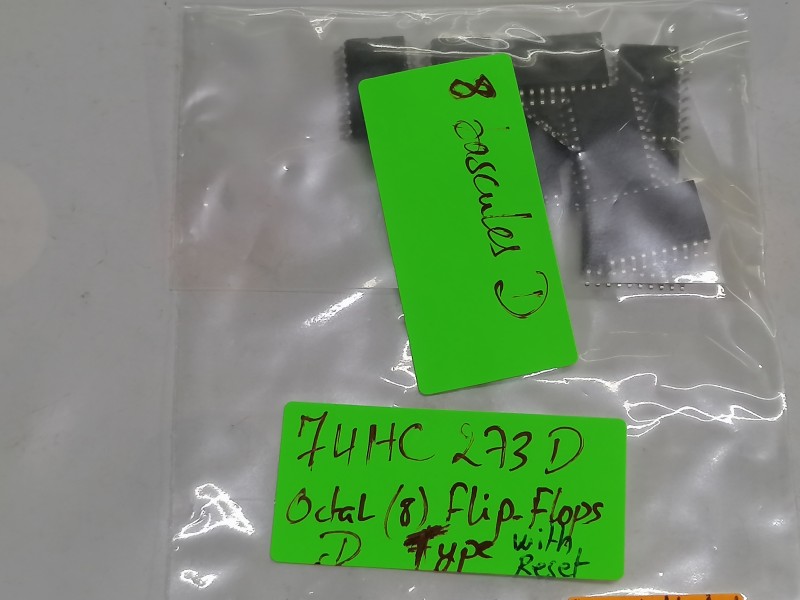 8 bascules D
74HC 273D
Octal (8) Flip-Flops
D Type with
Reset